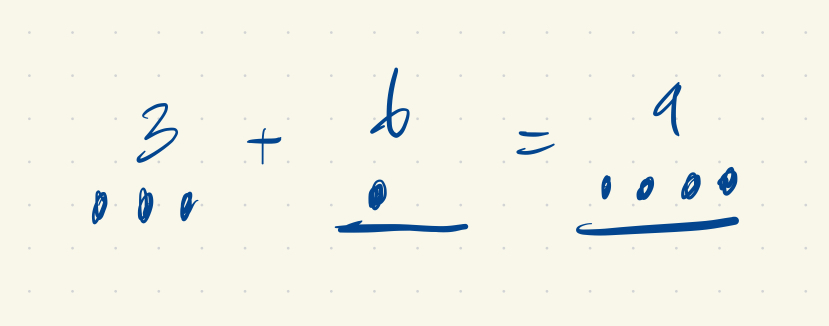 3 + 6 = 9